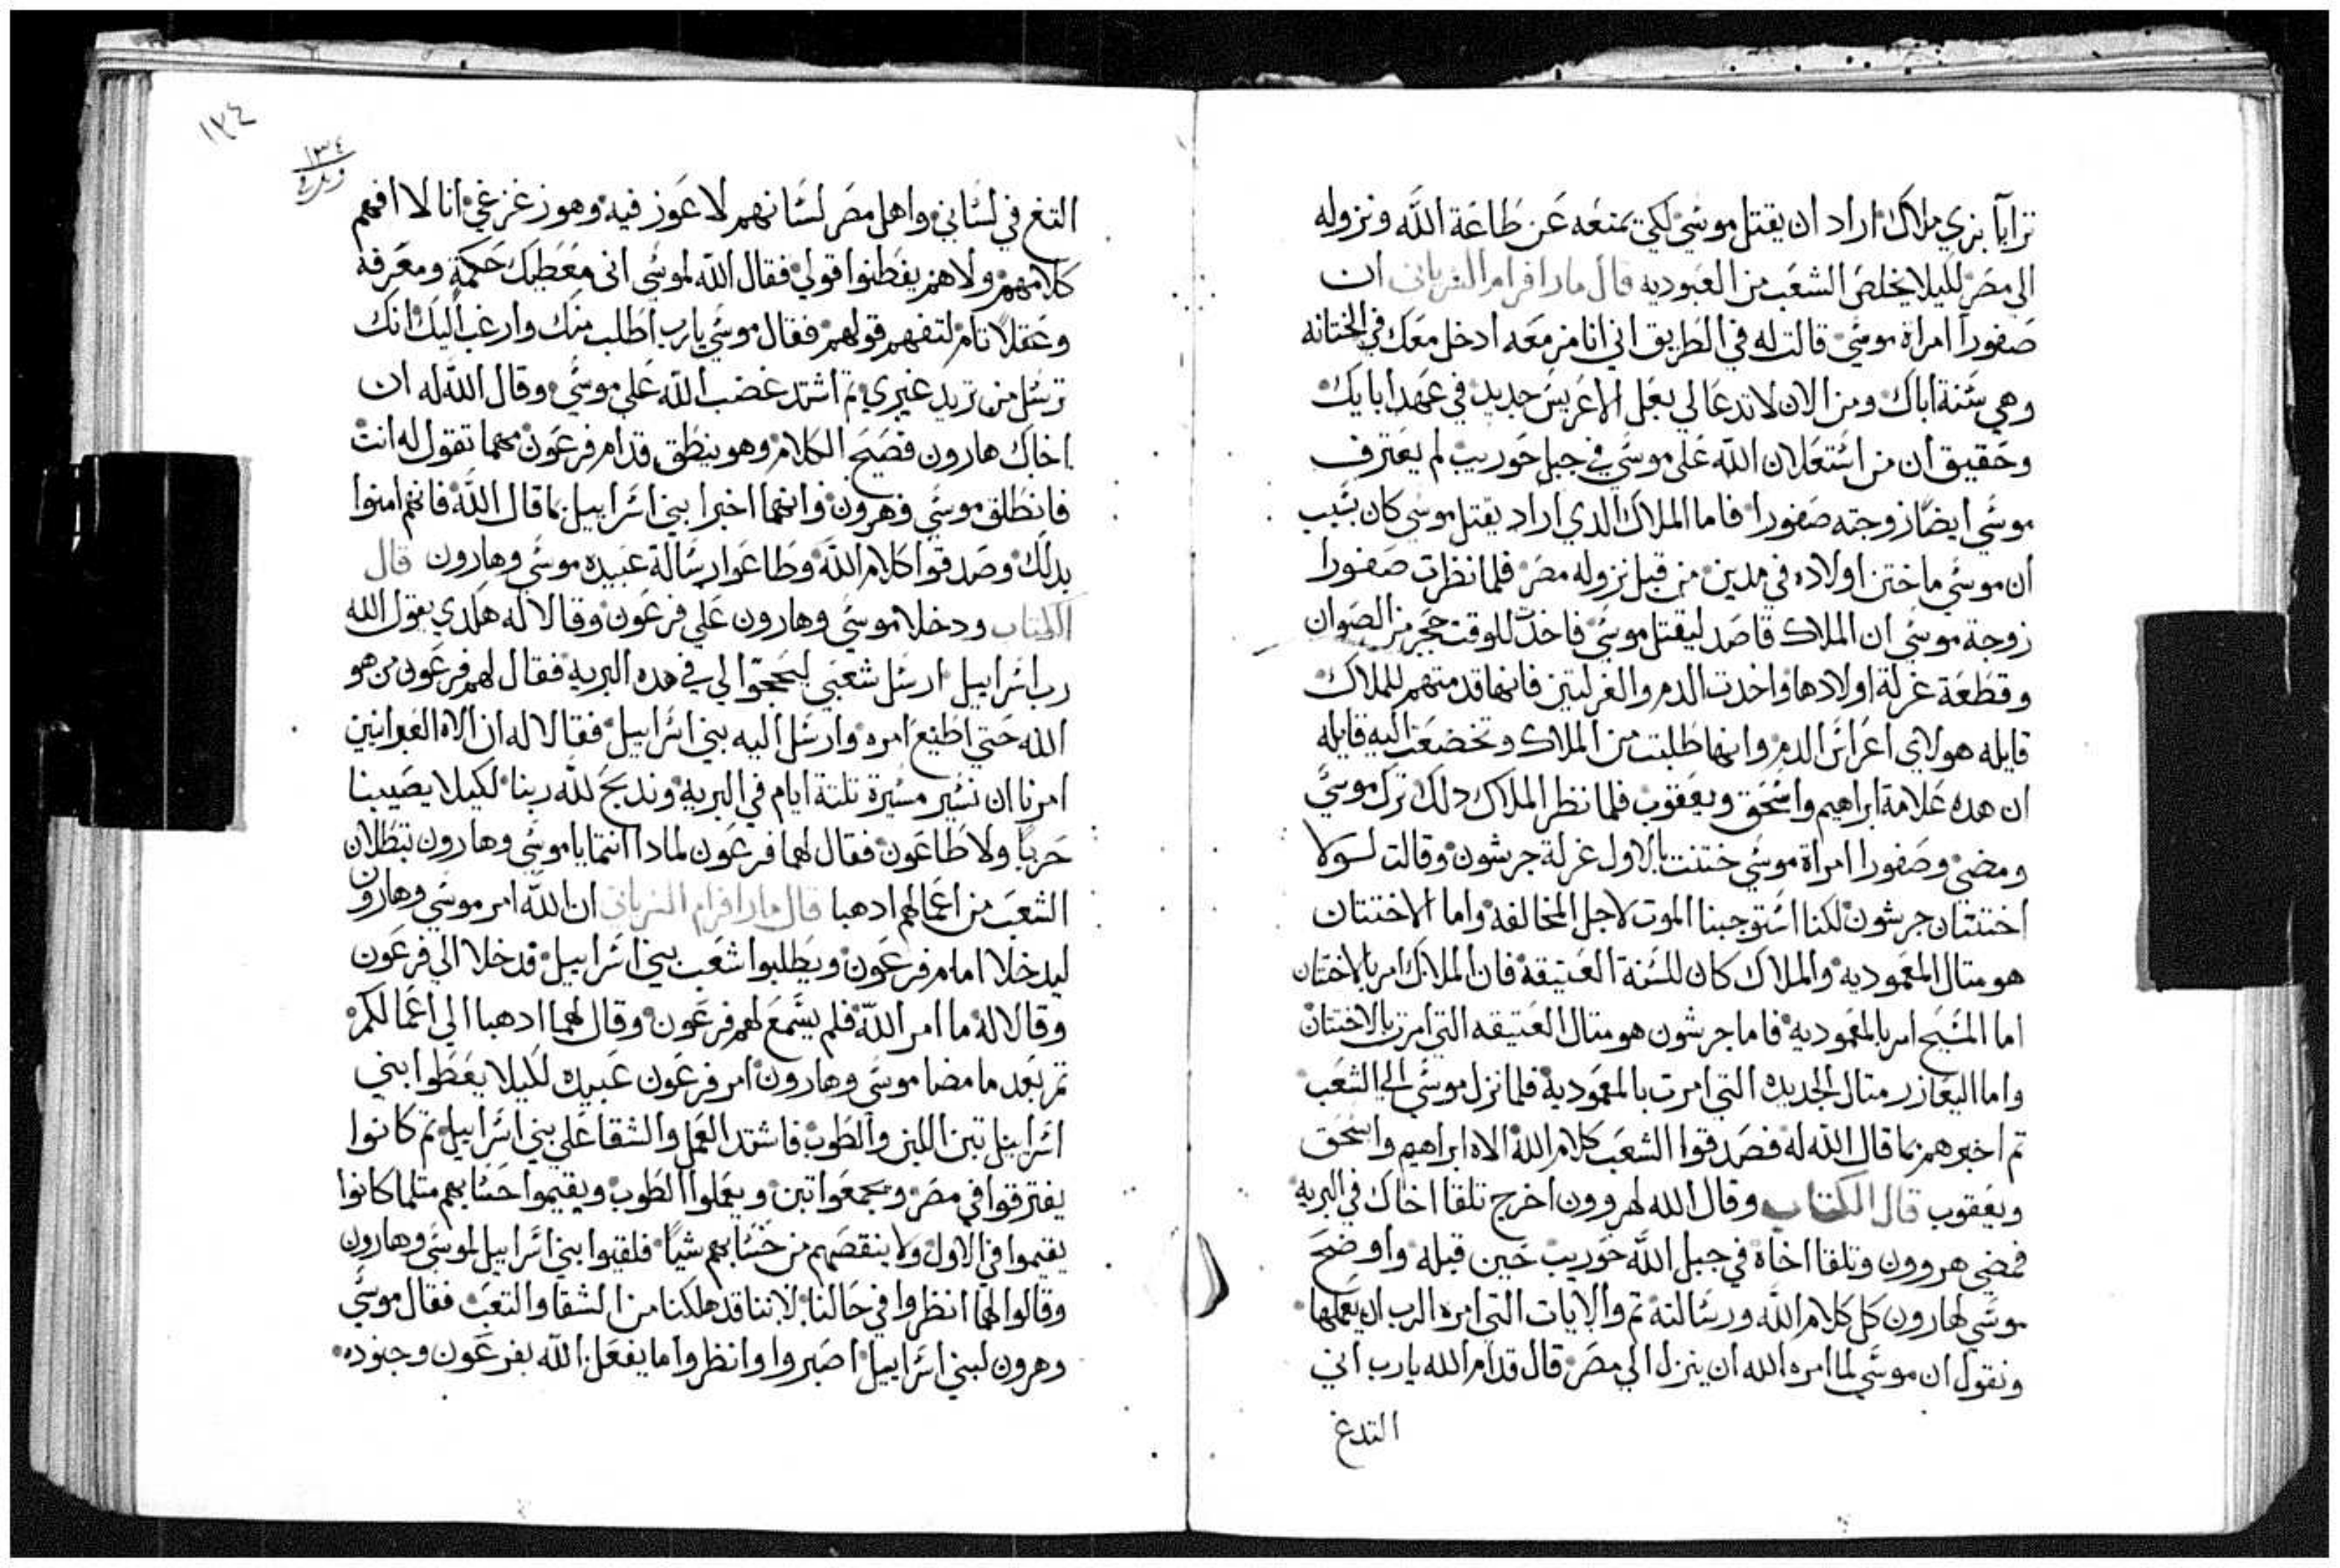 ترايا بزي ملاك اراد ان يقتل موسي لكي يمنعه عن طاعة الله ونزوله
الي مصر لكيلا يخلص الشعب من العبوديه قال مار افرام السرياني ان
صفورا امراة موسي قالت له في الطريق اني انا مزمعه ادخل معك في الختانه
وهي سنة اباك ومن الان لا تدعا لي بعل الا عريس جديد في عهد ابايك
وحقيق ان من استعلان الله علي موسي في جبل حوريب لم يعترف
موسي ايضا زوجته صفورا فاما الملاك الدي اراد يقتل موسي كان بسبب
ان موسي ما ختن اولاده في مدين من قبل نزوله مصر فلما نظرت صفورا
زوجة موسي ان الملاك قاصد ليقتل موسي فاخدت للوقت حجر من الصوان
وقطعة غرلة اولادها واخدت الدم والغرلتين فانها قدمتهم للملاك
قايله هولاي اعراس الدم وانها طلبت من الملاك وتخضعت اليه قايله
ان هده علامة ابراهيم واسحق ويعقوب فلما نظر الملاك دلك ترك موسي
ومضي وصفورا امراة موسي ختنت بالاول غرلة جرشون وقالت لولا
اختتان جرشون لكنا استوجبنا الموت لاجل المخالفه واما الاختتان
هو متال المعموديه والملاك كان للسنة العتيقة فان الملاك امر بالاختان
اما المسيح امر بالمعموديه فاما جرشون هو متال العتيقه التي امرت بالاختتان
واما اليعازر متال الجديده التي امرت بالمعموديه فلما نزل موسي الي الشعب
تم اخبرهم بما قال الله له فصدقوا الشعب كلام الله الاه ابراهيم واسحق
ويعقوب قال الكتاب وقال الله لهروون اخرج تلقا اخاك في البريه
فمضي هروون وتلقا اخاه في جبل الله حوريب حين قبله واوضح
موسي لهارون كل كلام الله ورسالته تم والايات التي امره الرب ان يعملها
ونقول ان موسي لما امره الله ان ينزل الي مصر قال قدام الله يارب اني
التدغ
١٣٤
١٣٤
التغ في لساني واهل مصر لسانهم لا عوز فيه وهو زغزغي انا لا افهم
كلامهم ولا هم يفطنوا قولي فقال الله لموسي اني معطيك حكمة ومعرفه
وعقلا تام لتفهم قولهم فقال موسي يارب اطلب منك وارغب اليك انك
ترسل من تريد غيري تم اشتد غضب الله علي موسي وقال الله له ان
اخاك هارون فصيح الكلام وهو ينطق قدام فرعون مهما تقول له انت
فانطلق موسي وهرون وانهما اخبرا بني اسراييل بما قال الله فانهم امنوا
بدلك وصدقوا كلام الله وطاعوا رسالة عبيده موسي وهارون قال
الكتاب ودخلا موسي وهارون علي فرعون وقالا له هكدي يقول الله
رب اسراييل ارسل شعبي ليحجوا لي في هده البريه فقال لهم فرعون من هو
الله حتي اطيع امره وارسل اليه بني اسراييل فقالا له ان الاه العبرانيين
امرنا ان نسير مسيرة تلتة ايام في البريه وندبح لله ربنا لكيلا يصيبنا
حربا ولا طاعون فقال لهما فرعون لمادا انتما ياموسي وهارون تبطلان
الشعب من اعمالهم ادهبا قال مار افرام السرياني ان الله امر موسي وهارون
ليدخلا امام فرعون ويطلبوا شعب بني اسراييل فدخلا الي فرعون
وقالا له ما امر الله فلم يسمع لهم فرعون وقال لهما ادهبا الي اعمالكم
تم بعد ما مضا موسي وهارون امر فرعون عبيده لكيلا يعطوا بني
اسراييل تبن اللبن والطوب فاشتد العمل والشقا علي بني اسراييل تم كانوا
يفترقوا في مصر ويجمعوا تبن ويعملوا الطوب ويقيموا حسابهم متلما كانوا
يقيموا في الاول ولا ينقصهم من حسابهم شيا فلقيوا بني اسراييل لموسي وهارون
وقالوا لهما انظروا في حالنا لاننا قد هلكنا من الشقا والتعب فقال موسي
وهرون لبني اسراييل اصبروا وانظروا ما يفعل الله بفرعون وجنوده